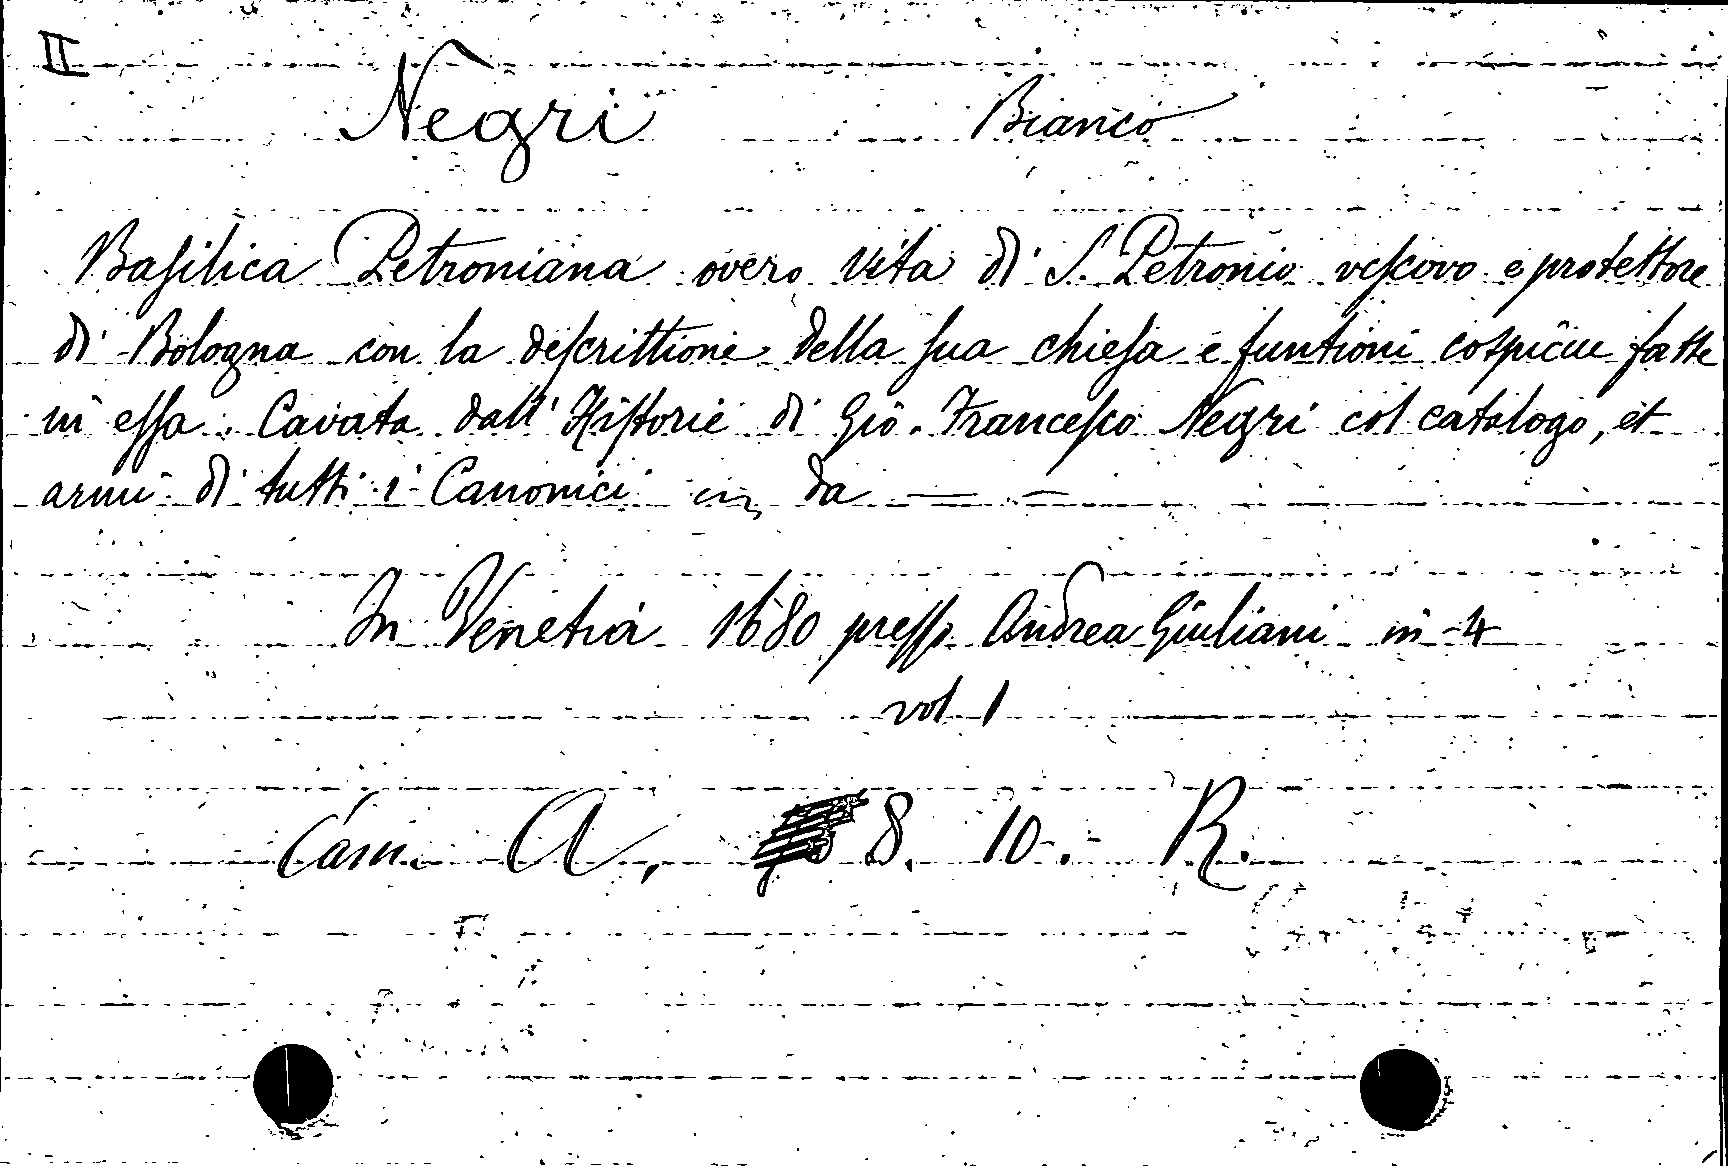 II
Negri Bianco
Basilica Petroniana overo vita di S. Petronio vescovo e protettore
di Bologna con la descrittione della sua chiesa e funtioni cospicue fatte
in essa. Cavata dall' Historie di Gio. Francesco Negri col catalogo, et
armi di tutti i Canonici in da — —
In Venetia 1680 presso Andrea Giuliani in-4
vol 1
Cam. A, 8. 10. R.